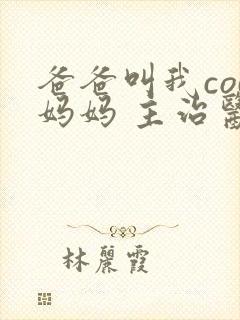 爸爸叫我co
妈妈 主治
林麗霞